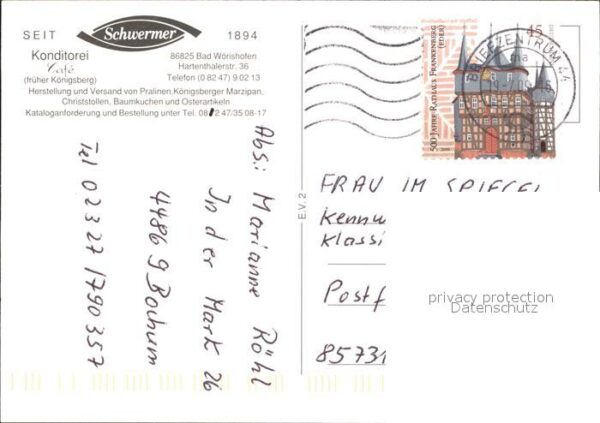 SEIT Schwermer 1894
Konditorei
Café
(früher Königsberg)
86825 Bad Wörishofen
Hartenthalerstr. 36
Telefon (0 82 47) 9 02 13
Herstellung und Versand von Pralinen, Königsberger Marzipan,
Christstollen, Baumkuchen und Osterartikeln
Kataloganforderung und Bestellung unter Tel. 08 2 47/35 08-17
Abs.: Marianne Röhl
In der Mark 26
44869 Bochum
Tel 02327/790357
E.V. 2
500 JAHRE RATHAUS FRANKENBERG
(EDER)
45
BRIEFZENTRUM 44
ma
FRAU IM SPIEGEL
Kennw
Klassi
Postf
85731
privacy protection
Datenschutz